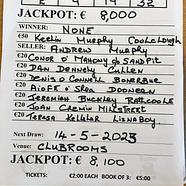 2 9 19 32
JACKPOT: € 8,000
WINNER: NONE
€50 KEELIN MURPHY COOLCLOUGH
SELLER: ANDREW MURPHY
€20 CONOR O'MAHONY SANDPIT
€20 DAN DENNEHY CULLEN
€20 DENIS O'CONNELL
€20 AOIFE O'SHEA DOONEEN
€20 JEREMIAH BUCKLEY RATHCOOLE
€20 JOHN CREMIN MILLSTREET
€20 TERESA KELLEHER LISNABOY
Next Draw: 14-5-2023
Venue: CLUBROOMS
JACKPOT: € 8,100
TICKETS: €2:00 EACH BOOK OF 3: €5:00